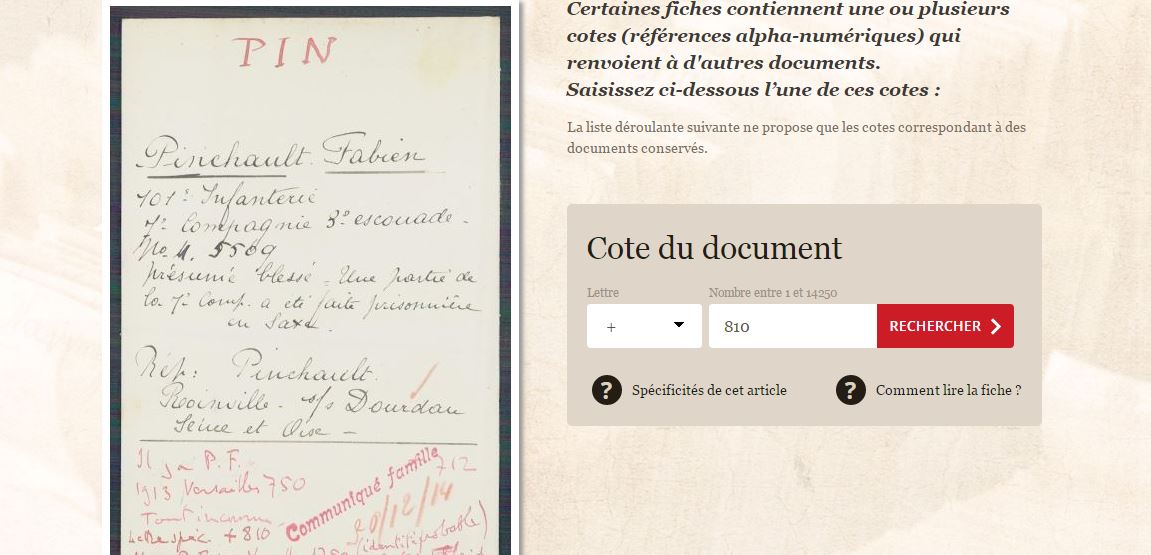 PIN
Pinchault. Fabien
101e Infanterie
7e Compagnie 3e escouade -
No M. 5509
présumé blessé - Une partie de
la 7e Comp. a été faite prisonnière
en Saxe.
Rép: Pinchault.
Roinville - s/s Dourdan
Seine et Oise -
Il y a P. F.
1913 Versailles 750
712
Communiqué famille
20/12/14
Tout inconnu
Lettre spéc. + 810
(identité probable)
Certaines fiches contiennent une ou plusieurs
cotes (références alpha-numériques) qui
renvoient à d'autres documents.
Saisissez ci-dessous l’une de ces cotes :
La liste déroulante suivante ne propose que les cotes correspondant à des
documents conservés.
Cote du document
Lettre Nombre entre 1 et 14250
+ 810 RECHERCHER
? Spécificités de cet article ? Comment lire la fiche ?